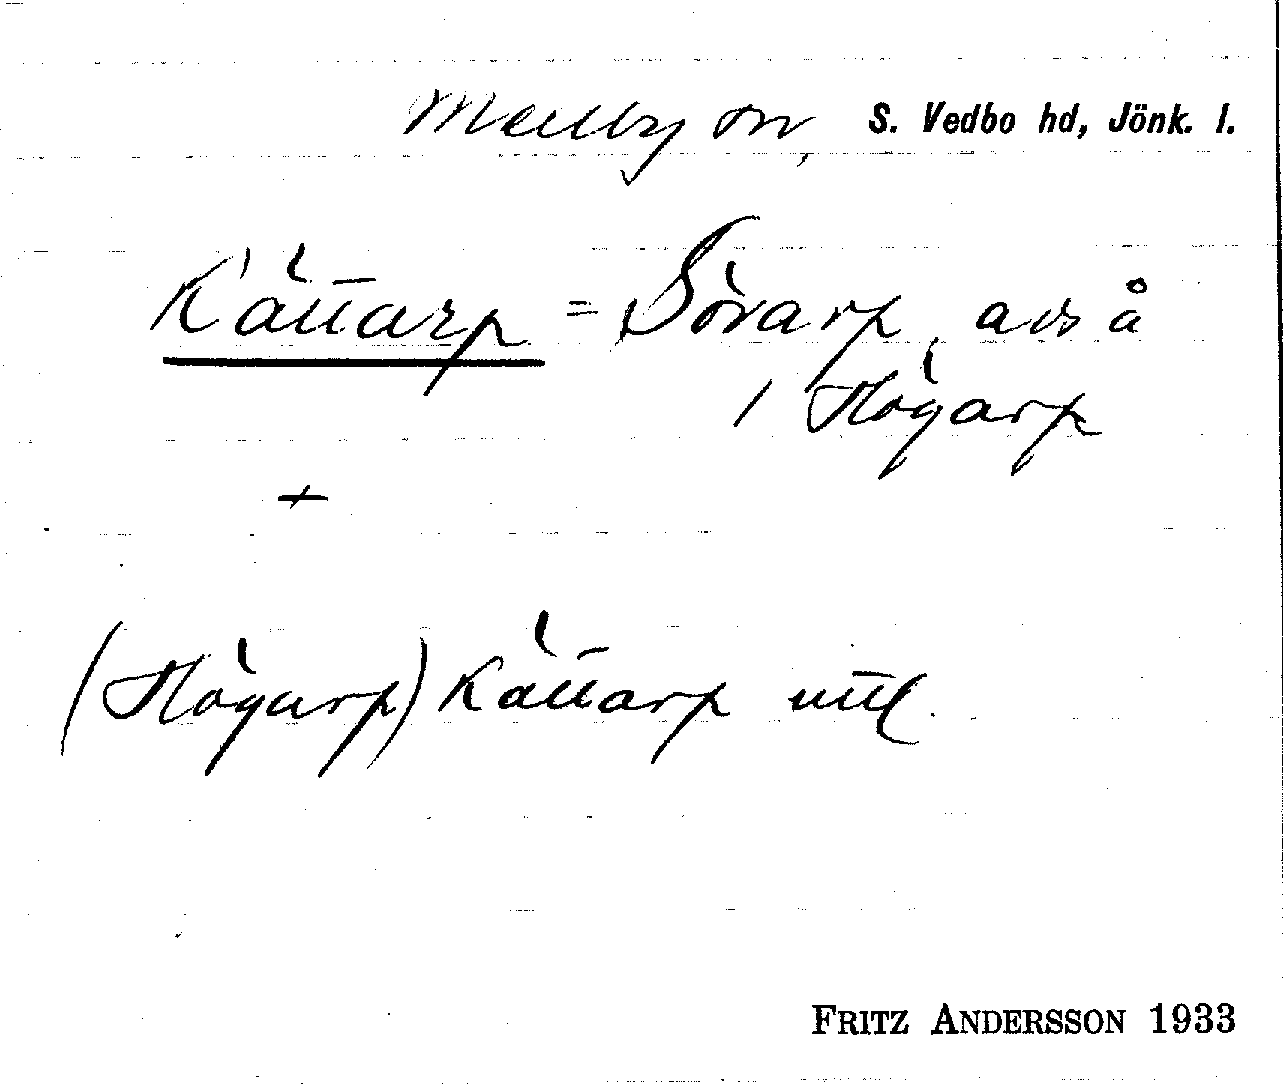 Mellby sn, S. Vedbo hd, Jönk. l.
Kättarp = Sörarp, avs å
/ Högarp
+
(Högarp) Kättarp utl.
FRITZ ANDERSSON 1933